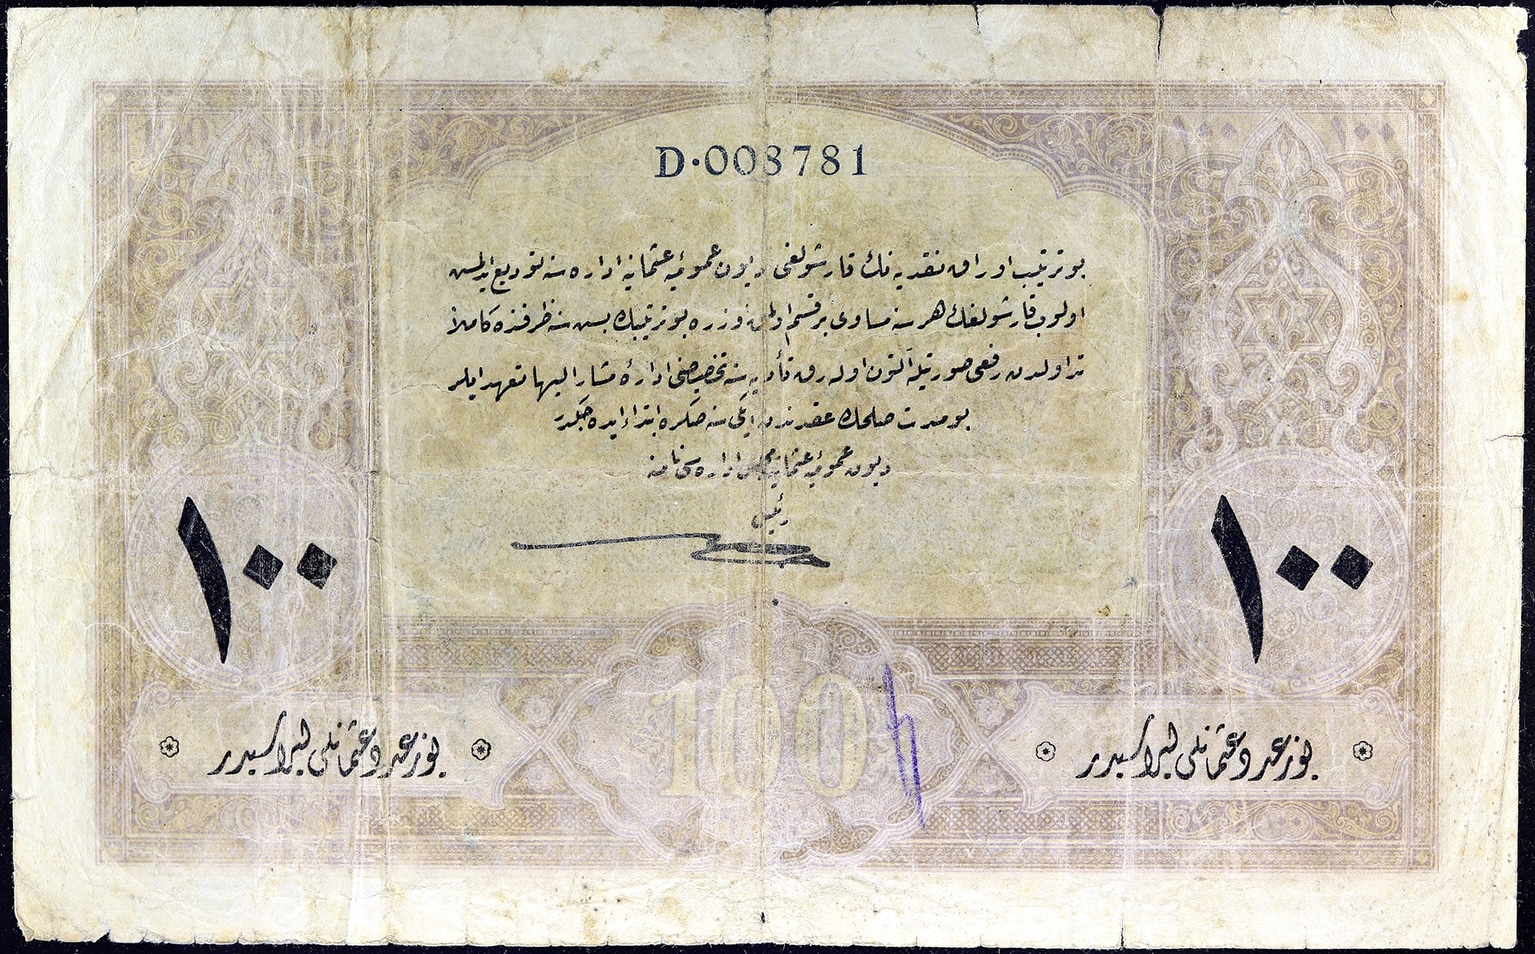 D·008781
بو ترتیب اوراق نقدیه نك قارشولغی دیون عمومیهٔ عثمانیه اداره سنه تودیع ایدلمش
اولوب قارشولغك هر سنه مساوی بر قسم اولمق اوزره بو ترتیبك بش سنه ظرفنده كاملاً
تداولدن رفعی صورتیله آلتون اوله رق تأدیه سنه تخصیصنی ادارهٔ مشار الیها تعهد ایلر
بو مدت صلحك عقدندن ایكی سنه صكره ابتدا ایده جكدر
دیون عمومیهٔ عثمانیه مجلس اداره سی نامنه
رئیس
١٠٠ ١٠٠
100
یوز عدد عثمانلی لیراسیدر
یوز عدد عثمانلی لیراسیدر